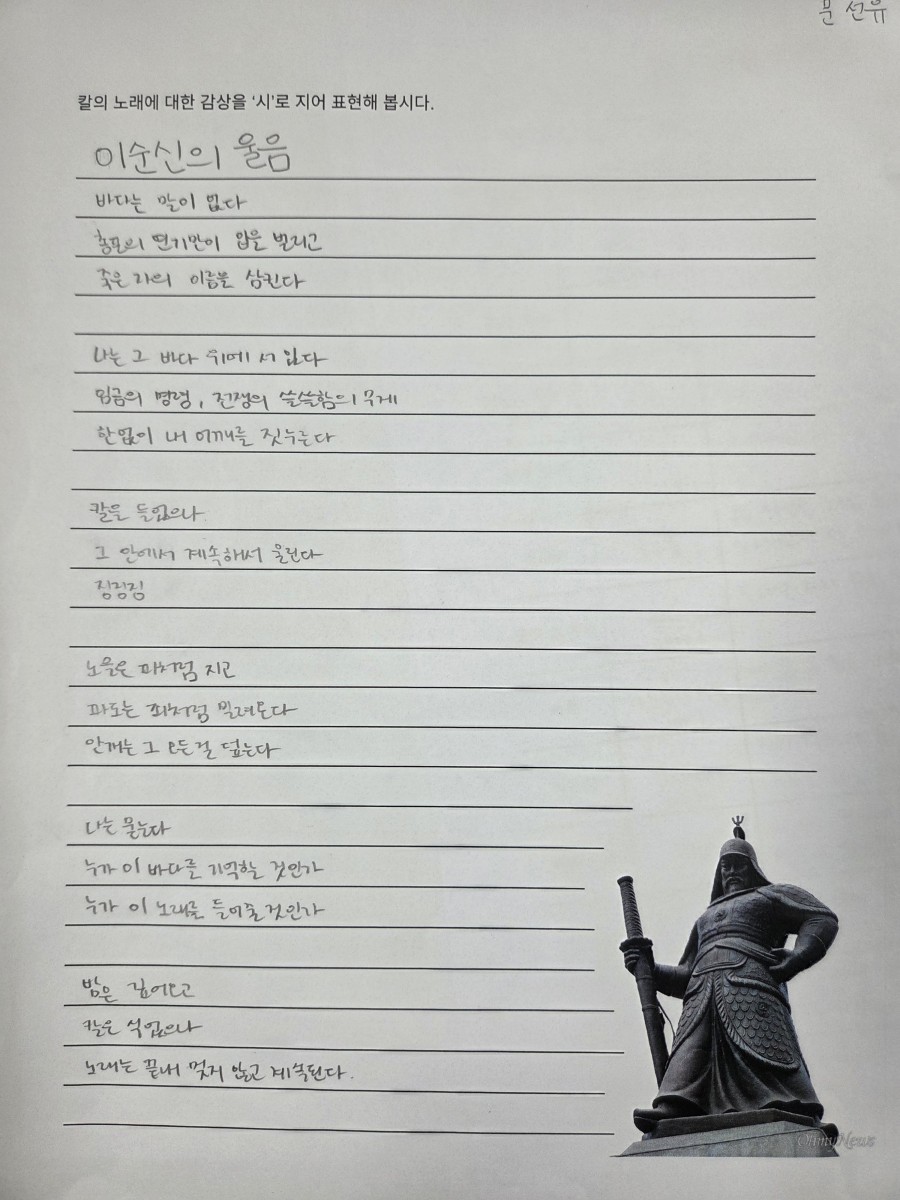 문 선유
칼의 노래에 대한 감상을 '시'로 지어 표현해 봅시다.
이순신의 울음
바다는 말이 없다
총포의 연기만이 입을 벌리고
죽은 자의 이름을 삼킨다
나는 그 바다 위에 서 있다
임금의 명령, 전쟁의 쓸쓸함의 무게
한없이 내 어깨를 짓누른다
칼을 들었으나
그 안에서 계속해서 울린다
징징징
노을은 피처럼 지고
파도는 죄처럼 밀려온다
안개는 그 모든걸 덮는다
나는 묻는다
누가 이 바다를 기억할 것인가
누가 이 노래를 들어줄것인가
밤은 깊어오고
칼은 식었으나
노래는 끝내 멎지 않고 계속된다.
OhmyNews